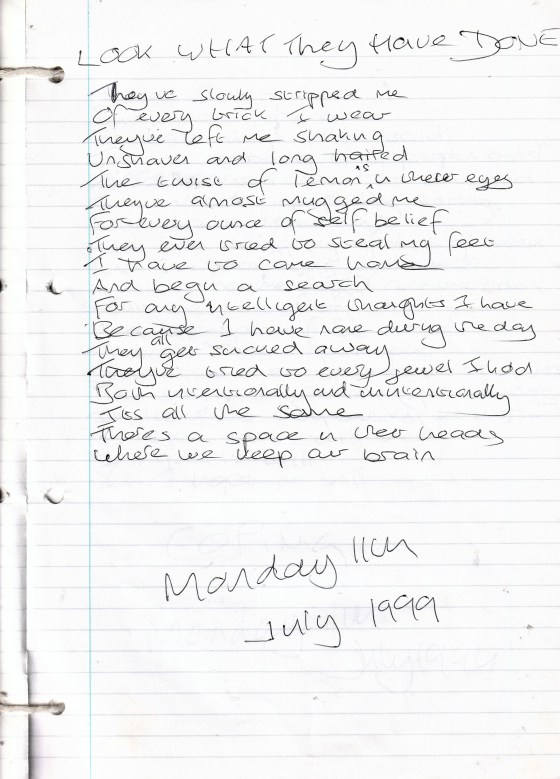 LOOK WHAT They Have DONE
They've slowly stripped me
Of every brick I wear
They've left me shaking
Unshaven and long haired
The twist of lemon is in their eyes
They've almost mugged me
For every ounce of self belief
They even tried to steal my feet
I have to come home
And begin a search
For any intelligent thoughts I have
Because I have none during the day
They all get sucked away
They've tried to every jewel I hold
Both intentionally and unintentionally
Its all the same
Theres a space in their heads
Where we keep our brain
Monday 11th
July 1999